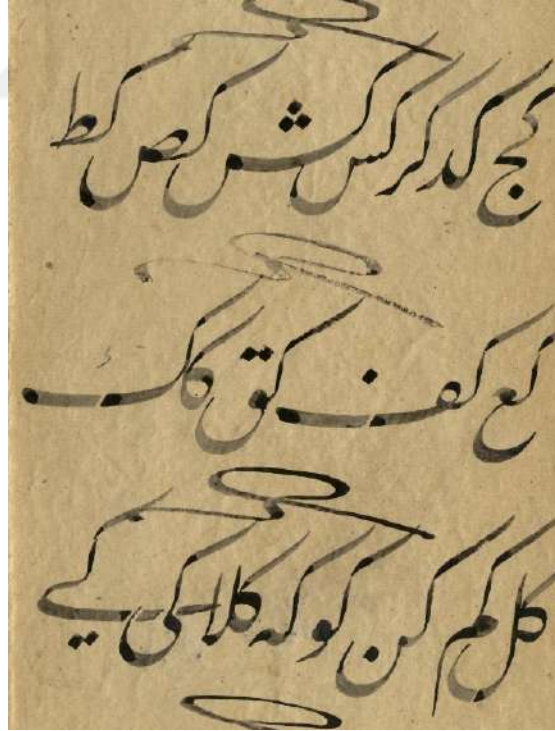 کج کد کر کس کش کص کط
کع کف کق کک
کل کم کن کو که کلا کی کے